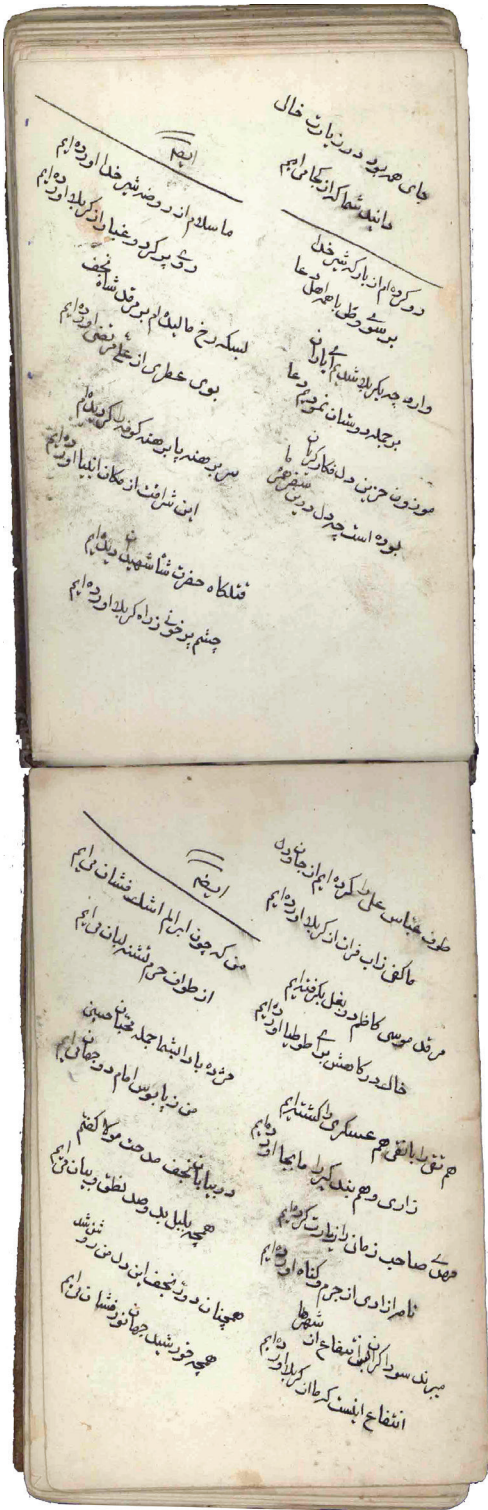 جای همه بود در زیارت خالی
دانید شما که از کجا می ایم
رو کرده ام از بارکه شیر خدا
بر سوی وطن با همه اهل دعا
وارد چه بکربلا شدیم ای یاران
بر جمله دوستان نمودیم دعا
موزون حزین دل فکار کریان
بوده است چه دل درین سفر همره ما
ایضا
ما سلام از روضه شیر خدا اورده ایم
روی پر کرد و غبار از کربلا اورده ایم
بسکه رخ مالیده ام بر مرقد شاه نجف
بوی عطری از علی مرتضی اورده ایم
سر برهنه پا برهنه کوفه را کردیده ام
این شرافت از مکان انبیا اورده ایم
قتلکاه حضرت شاه شهیدان دیده ایم
چشم پر خونی ز راه کربلا اورده ایم
طوف عباس علی را کرده ایم از جان و دل
ما کفی زاب فرات از کربلا اورده ایم
مرقد موسی کاظم در بغل بکرفته ایم
خاک درکاهش برای طوطیا اورده ایم
هم تقی را با نقی هم عسکری را کشته ایم
زاری و هم بند کیرا ما بجا اورده ایم
مهدی صاحب زمان را زیارت کرده ایم
نامه ازادی از جرم و کناه اورده ایم
میبرند سوداکران جنس انتفاع از شهرها
انتفاع اینست که ما از کربلا اورده ایم
ایضا
من که چون ابر الم اشک فشان می ایم
از طواف حرم تشنه لبان می ایم
مژده باد ابشما جمله محبان حسین
من ز پا بوس امام دو جهان می ایم
در بیابان نجف مدحت مولا کفتم
همچه بلبل بدو صد نطق و بیان می ایم
همچنان در نجف این دل من روشن شد
همچه خورشید جهان نور فشان می ایم